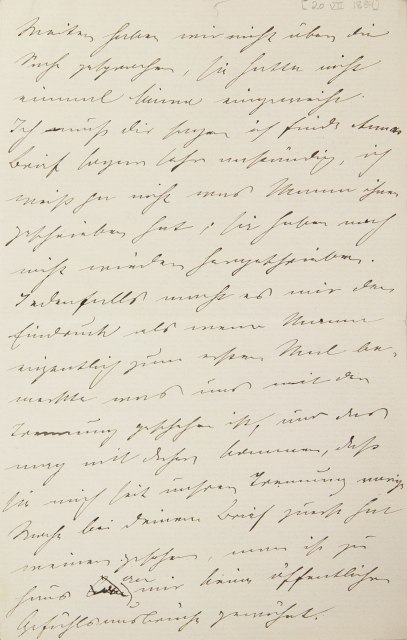 [20 VII 1884]
Weiter haben wir nicht über die
Sache gesprochen, sie hatte nicht
einmal Minna eingeweiht.
Ich muß dir sagen ich finde Mamas
Brief sogar sehr vernünftig, ich
weiß ja nicht was Mama ihnen
geschrieben hat; sie haben noch
nicht wieder hergeschrieben.
Jedenfalls macht es mir den
Eindruck als wenn Mama
eigentlich zum ersten Mal be-
merkte was uns mit der
Trennung geschehen ist, und das
mag mit daher kommen, daß
sie mich seit unserer Trennung vorige
Woche bei deinem Brief zuerst hat
weinen gesehen, man ist zu
Haus an mir keine öffentlichen
Gefühlsausbrüche gewöhnt.